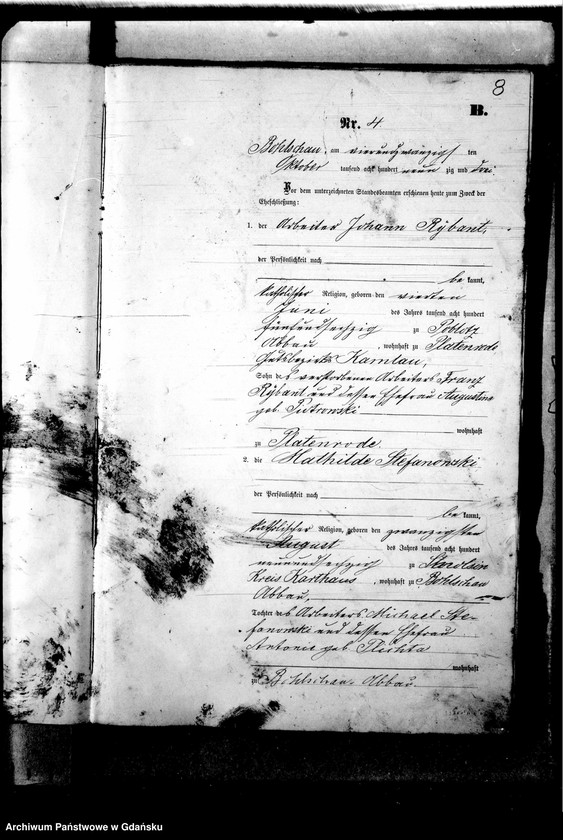 8
B.
Nr. 4.
Bohlschau, am vierundzwanzigsten
Oktober tausend acht hundert neunzig und drei.
Vor dem unterzeichneten Standesbeamten erschienen heute zum Zweck der
Eheschließung:
1. der Arbeiter Johann Rÿbant,
der Persönlichkeit nach
be kannt,
katholischer Religion, geboren den vierten
Juni des Jahres tausend acht hundert
fünfundsechzig zu Poblotz
Abbau, wohnhaft zu Platenrode
Gutsbezirks Kamlau,
Sohn des verstorbenen Arbeiters Franz
Rÿbant und dessen Ehefrau Augustine
geb. Piotrowski
wohnhaft
zu Platenrode.
2. die Mathilde Stefanowski
der Persönlichkeit nach
be kannt,
katholischer Religion, geboren den zwanzigsten
August des Jahres tausend acht hundert
neunundsechzig zu
Kreis Karthaus, wohnhaft zu Bohlschau
Abbau,
Tochter des Arbeiters Michael Ste-
fanowski und dessen Ehefrau
Antonie geb. Plichta
wohnhaft
zu Bohlschau-Abbau.
Archiwum Państwowe w Gdańsku